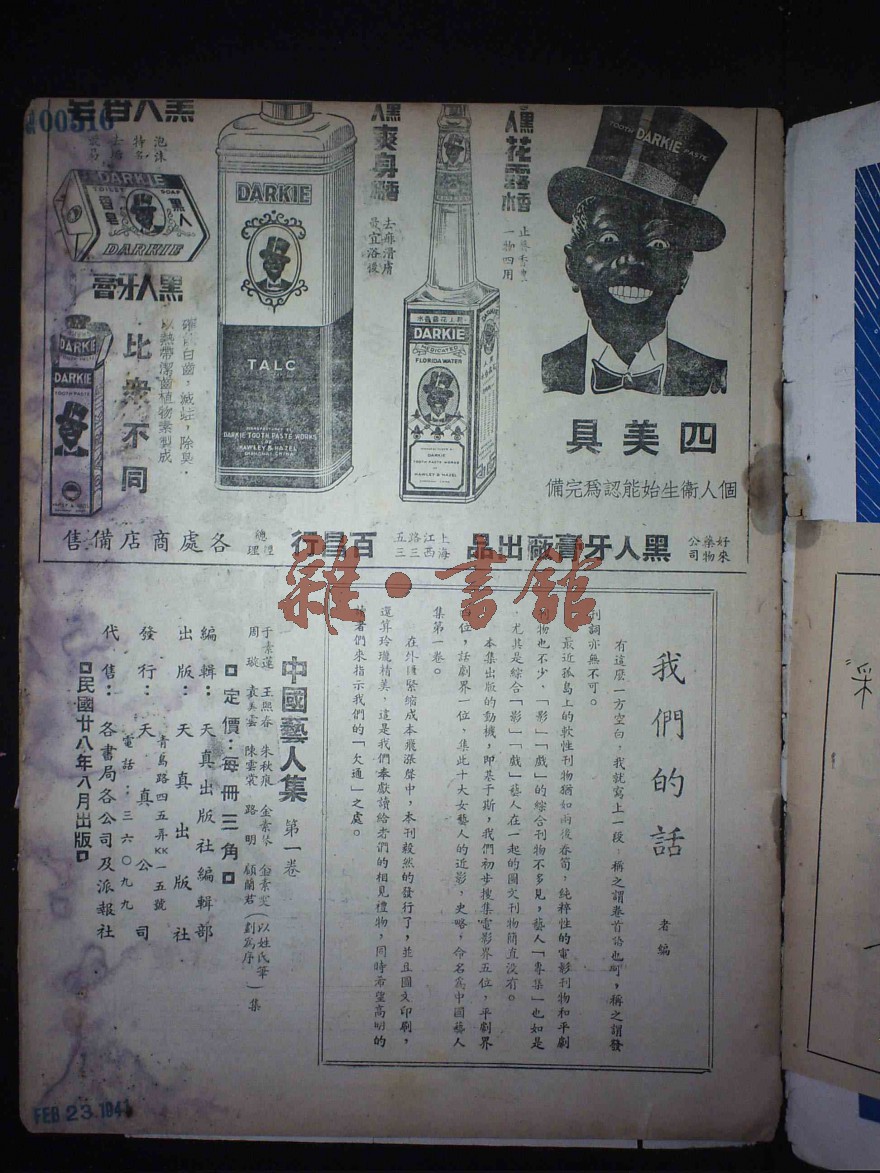 00516
黑人香皂
泡沫
特多
DARKIE
TOILET SOAP
香皂
黑人
DARKIE
黑人牙膏
比衆不同
確保白齒，滅蛀，除臭，
以熱帶潔齒植物素製成
DARKIE
DARKIE
TOOTH PASTE
DARKIE
TALC
MANUFACTURED BY
DARKIE TOOTH PASTE WORKS
OF
HAWLEY & HAZEL
SHANGHAI, CHINA
黑人爽身粉
去痱滑膚
最宜浴後
黑人花露水
一物四用
DARKIE
MEDICATED
FLORIDA WATER
MANUFACTURED BY
DARKIE
TOOTH PASTE WORKS
OF
HAWLEY & HAZEL
TOOTH DARKIE PASTE
四美具
個人衞生始能認爲完備
好來藥物公司
黑人牙膏廠出品
上海江西路三五三
總經理
百昌行
各處商店備售
雜·書館
我們的話
編者
有這麽一方空白，我就寫上一段，稱之謂卷首語也可，稱之謂發
刊詞亦無不可。
最近孤島上的軟性刊物猶如雨後春筍，純粹性的電影刊物和平劇
刊物也不少，「影」「戲」的綜合刊物不多見，藝人「專集」也如是
尤其是綜合「影」「戲」藝人在一起的圖文刊物簡直没有。
本集出版的動機，即基于斯，我們初步搜集電影界五位，平劇界
四位，話劇界一位，集此十大女藝人的近影，史略，命名爲中國藝人
集第一卷。
在外匯緊縮成本飛漲聲中，本刊毅然的發行了，並且圖文印刷，
還算玲瓏精美，這是我們奉獻讀給者們的相見禮物，同時希望高明的
讀者們來指示我們的「欠通」之處。
中國藝人集 第一卷
于素蓮 王熙春 朱秋痕 金素琴 金素雯
周璇 袁美雲 陳雲裳 路明 顧蘭君（以姓氏筆劃爲序）集
□定價：每冊三角□
編輯：天真出版社編輯部
出版：天真出版社
青島路四五弄KK一五號
發行：天真公司
電話：三六〇九九
代售：各書局各公司及派報社
□民國廿八年八月出版□
FEB 23 194
采